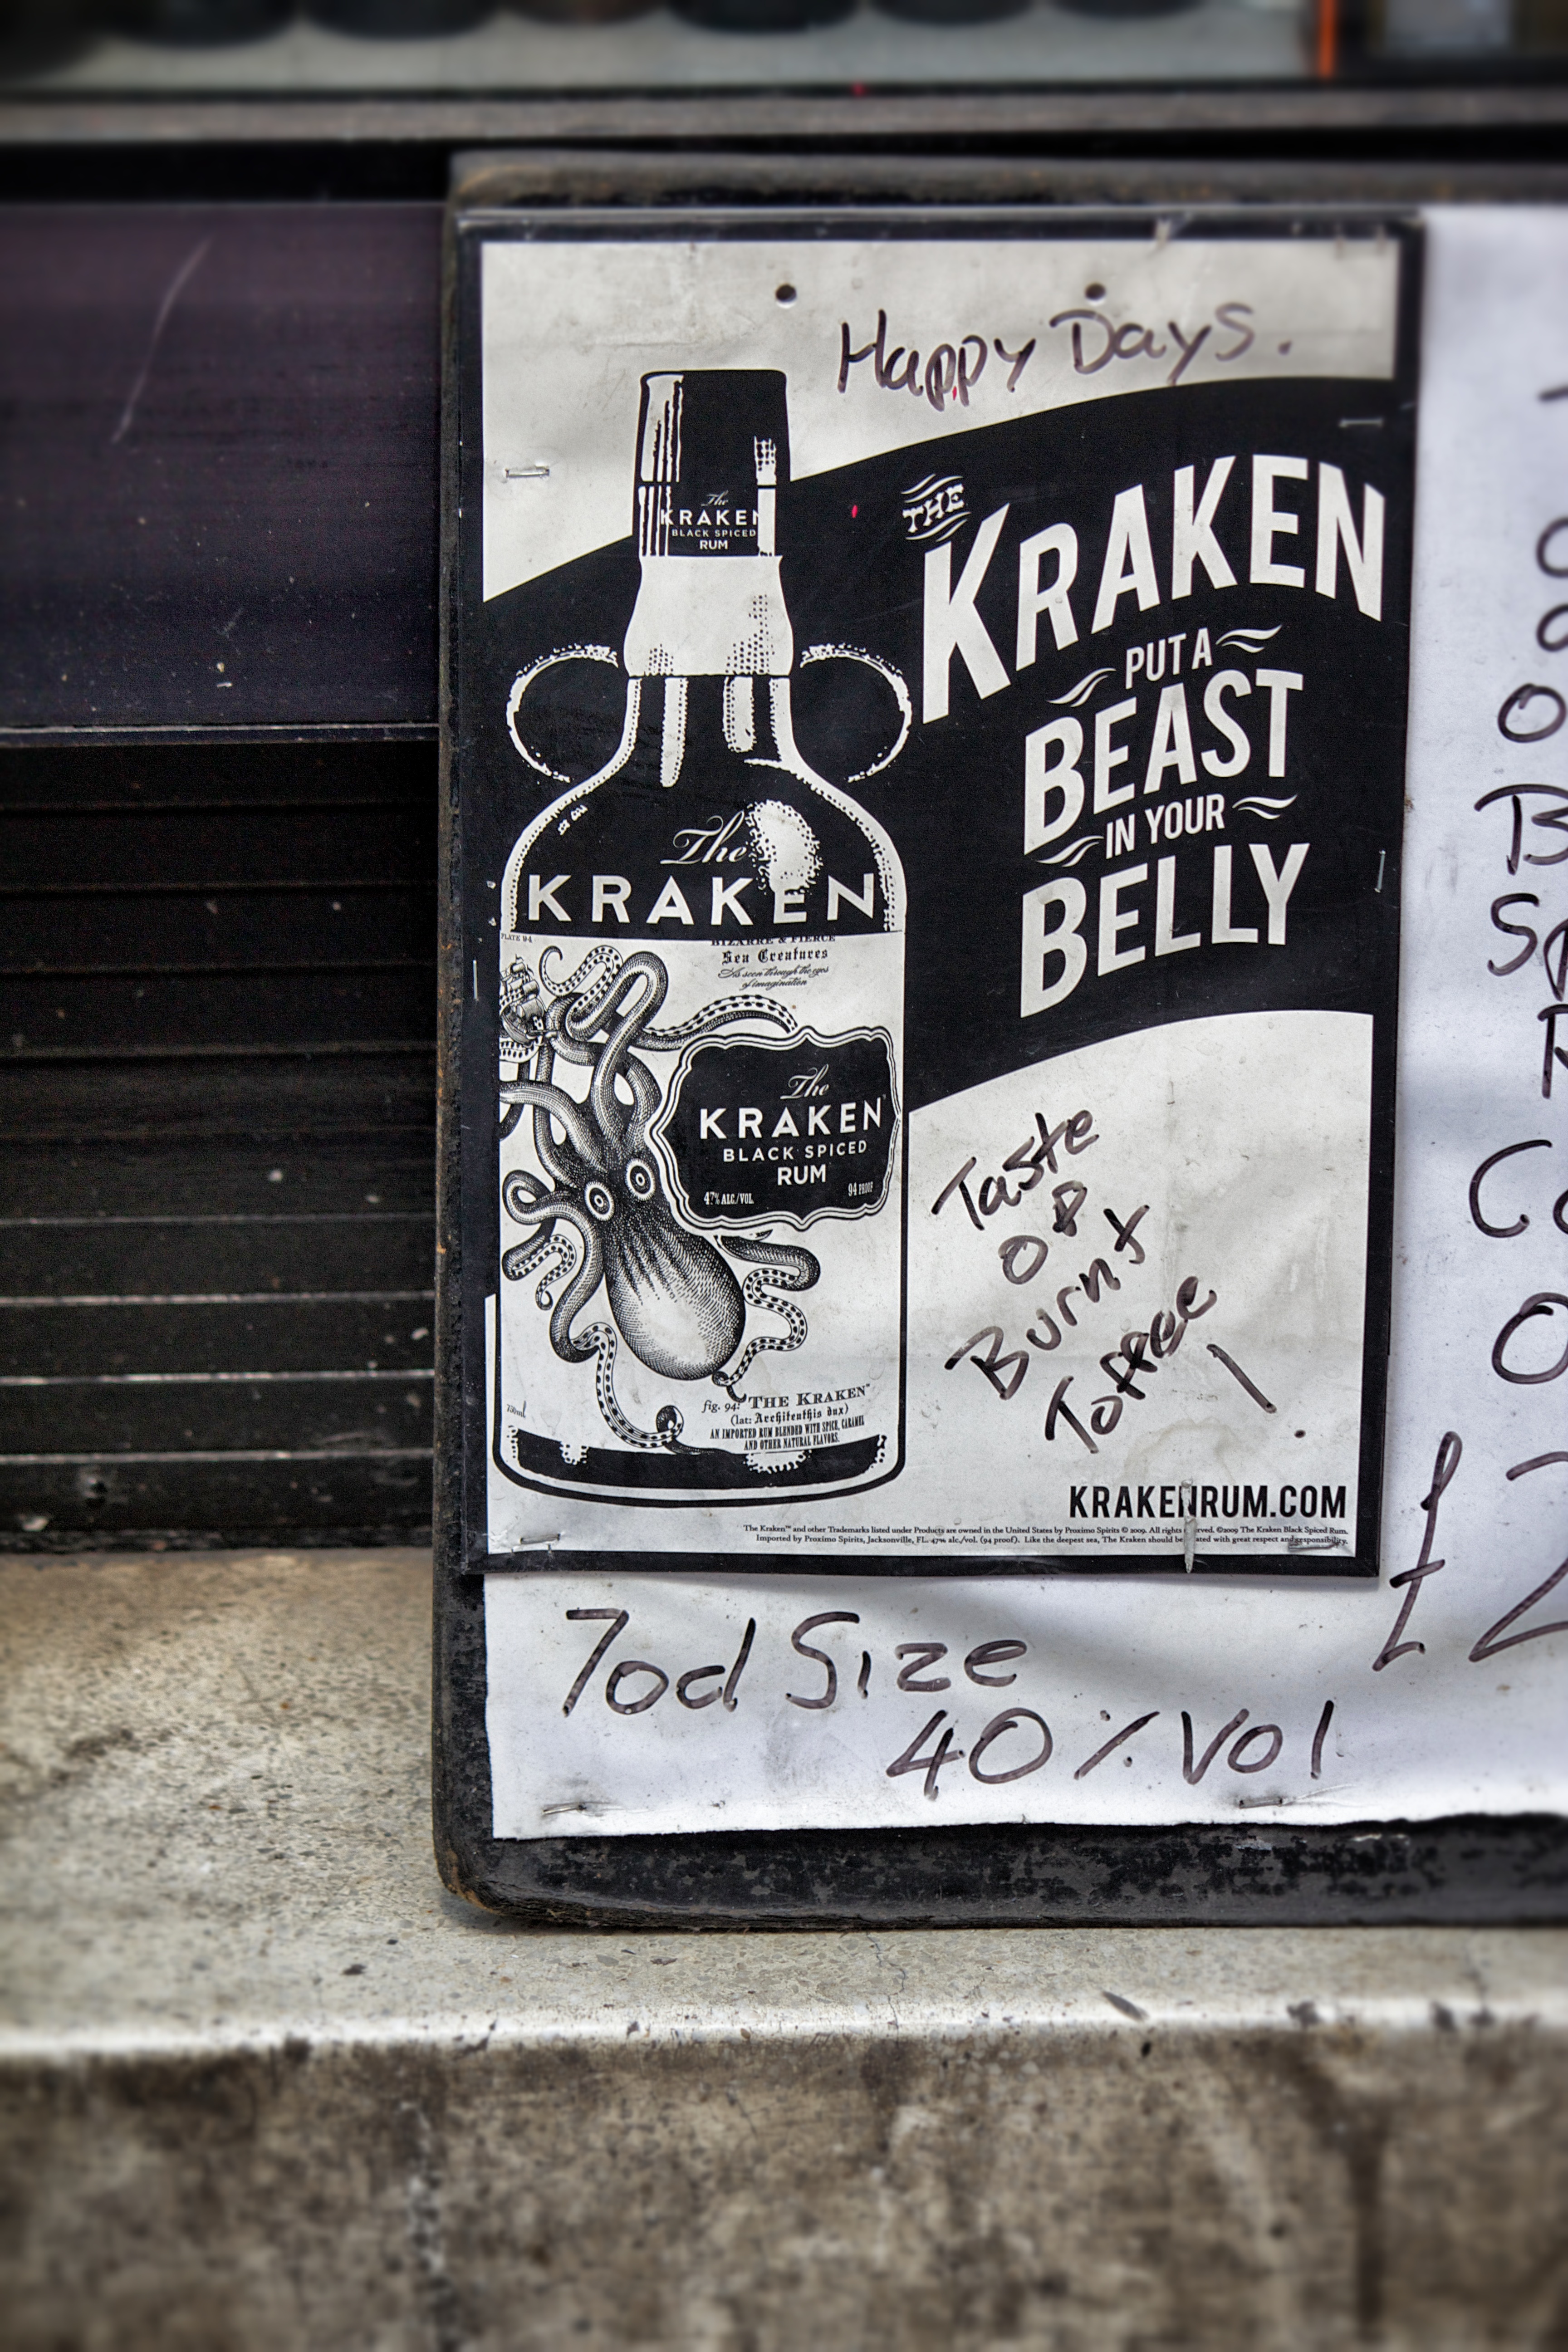 Happy Days.
The
KRAKEN
BLACK SPICED
RUM
THE
KRAKEN
PUT A
BEAST
IN YOUR
BELLY
The
KRAKEN
PLATE 94
BIZARRE & FIERCE
Sea Creatures
As seen through the eyes
of imagination
The
KRAKEN
BLACK SPICED
RUM
47% ALC/VOL 94 PROOF
fig. 94: THE KRAKEN™
(lat: Architeuthis dux)
AN IMPORTED RUM BLENDED WITH SPICE, CARAMEL
AND OTHER NATURAL FLAVORS.
750ml
Taste
of
Burnt
Toffee
!
KRAKENRUM.COM
The Kraken™ and other Trademarks listed under Products are owned in the United States by Proximo Spirits © 2009. All rights ©2009 The Kraken Black Spiced Rum.
Imported by Proximo Spirits, Jacksonville, FL. 47% alc./vol. (94 proof). Like the deepest sea, The Kraken should be with great respect and responsibility.
70cl Size
40% Vol
£2